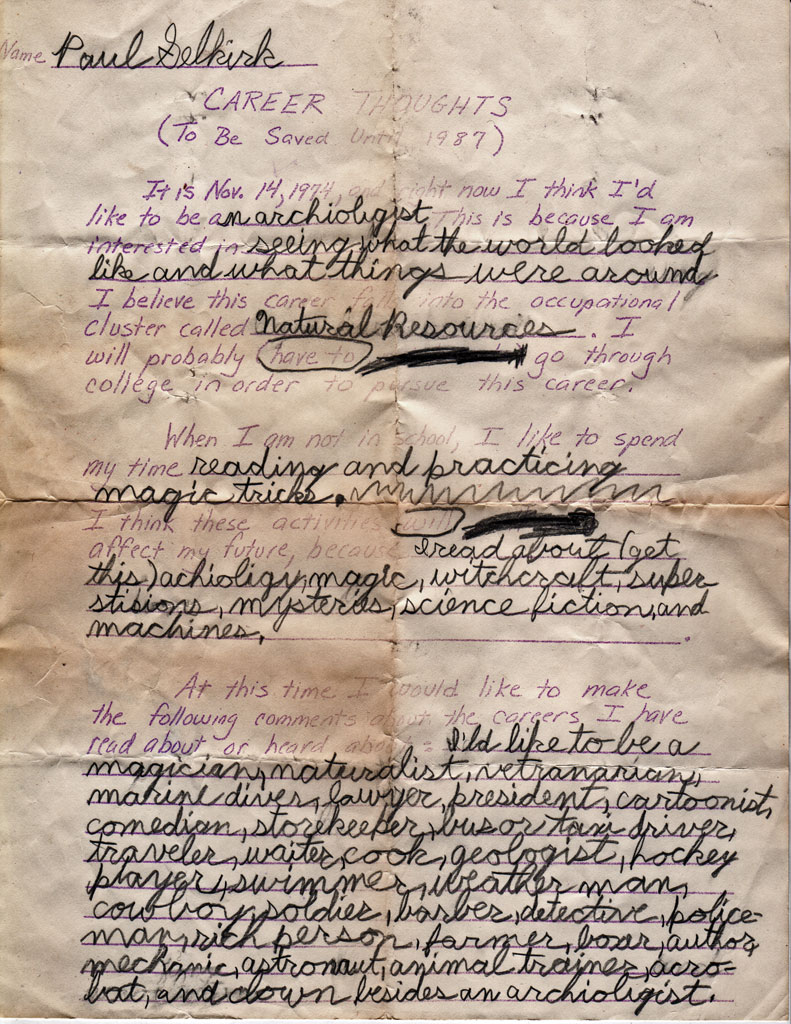 Name Paul Selkirk
CAREER THOUGHTS
(To Be Saved Until 1987)
It is Nov. 14, 1974, and right now I think I'd
like to be an archioligist This is because I am
interested in seeing what the world looked
like and what things were around
I believe this career falls into the occupational
cluster called Natural Resources. I
will probably (have to) go through
college in order to persue this career.
When I am not in school, I like to spend
my time reading and practicing
magic tricks.
I think these activities will
affect my future, because I read about (get
this) achioligy, magic, witchcraft, super
stisions, mysteries, science fiction, and
machines.
At this time I would like to make
the following comments about the careers I have
read about or heard about: I'ld like to be a
magician, naturalist, vetranarian,
marine diver, lawyer, president, cartoonist,
comedian, storekeeper, bus or taxi driver,
traveler, waiter, cook, geologist, hockey
player, swimmer, weather man,
cowboy, soldier, barber, detective, police-
man, rich person, farmer, boxer, author,
mechanic, astronaut, animal trainer, acro-
bat, and clown besides an archioligist.